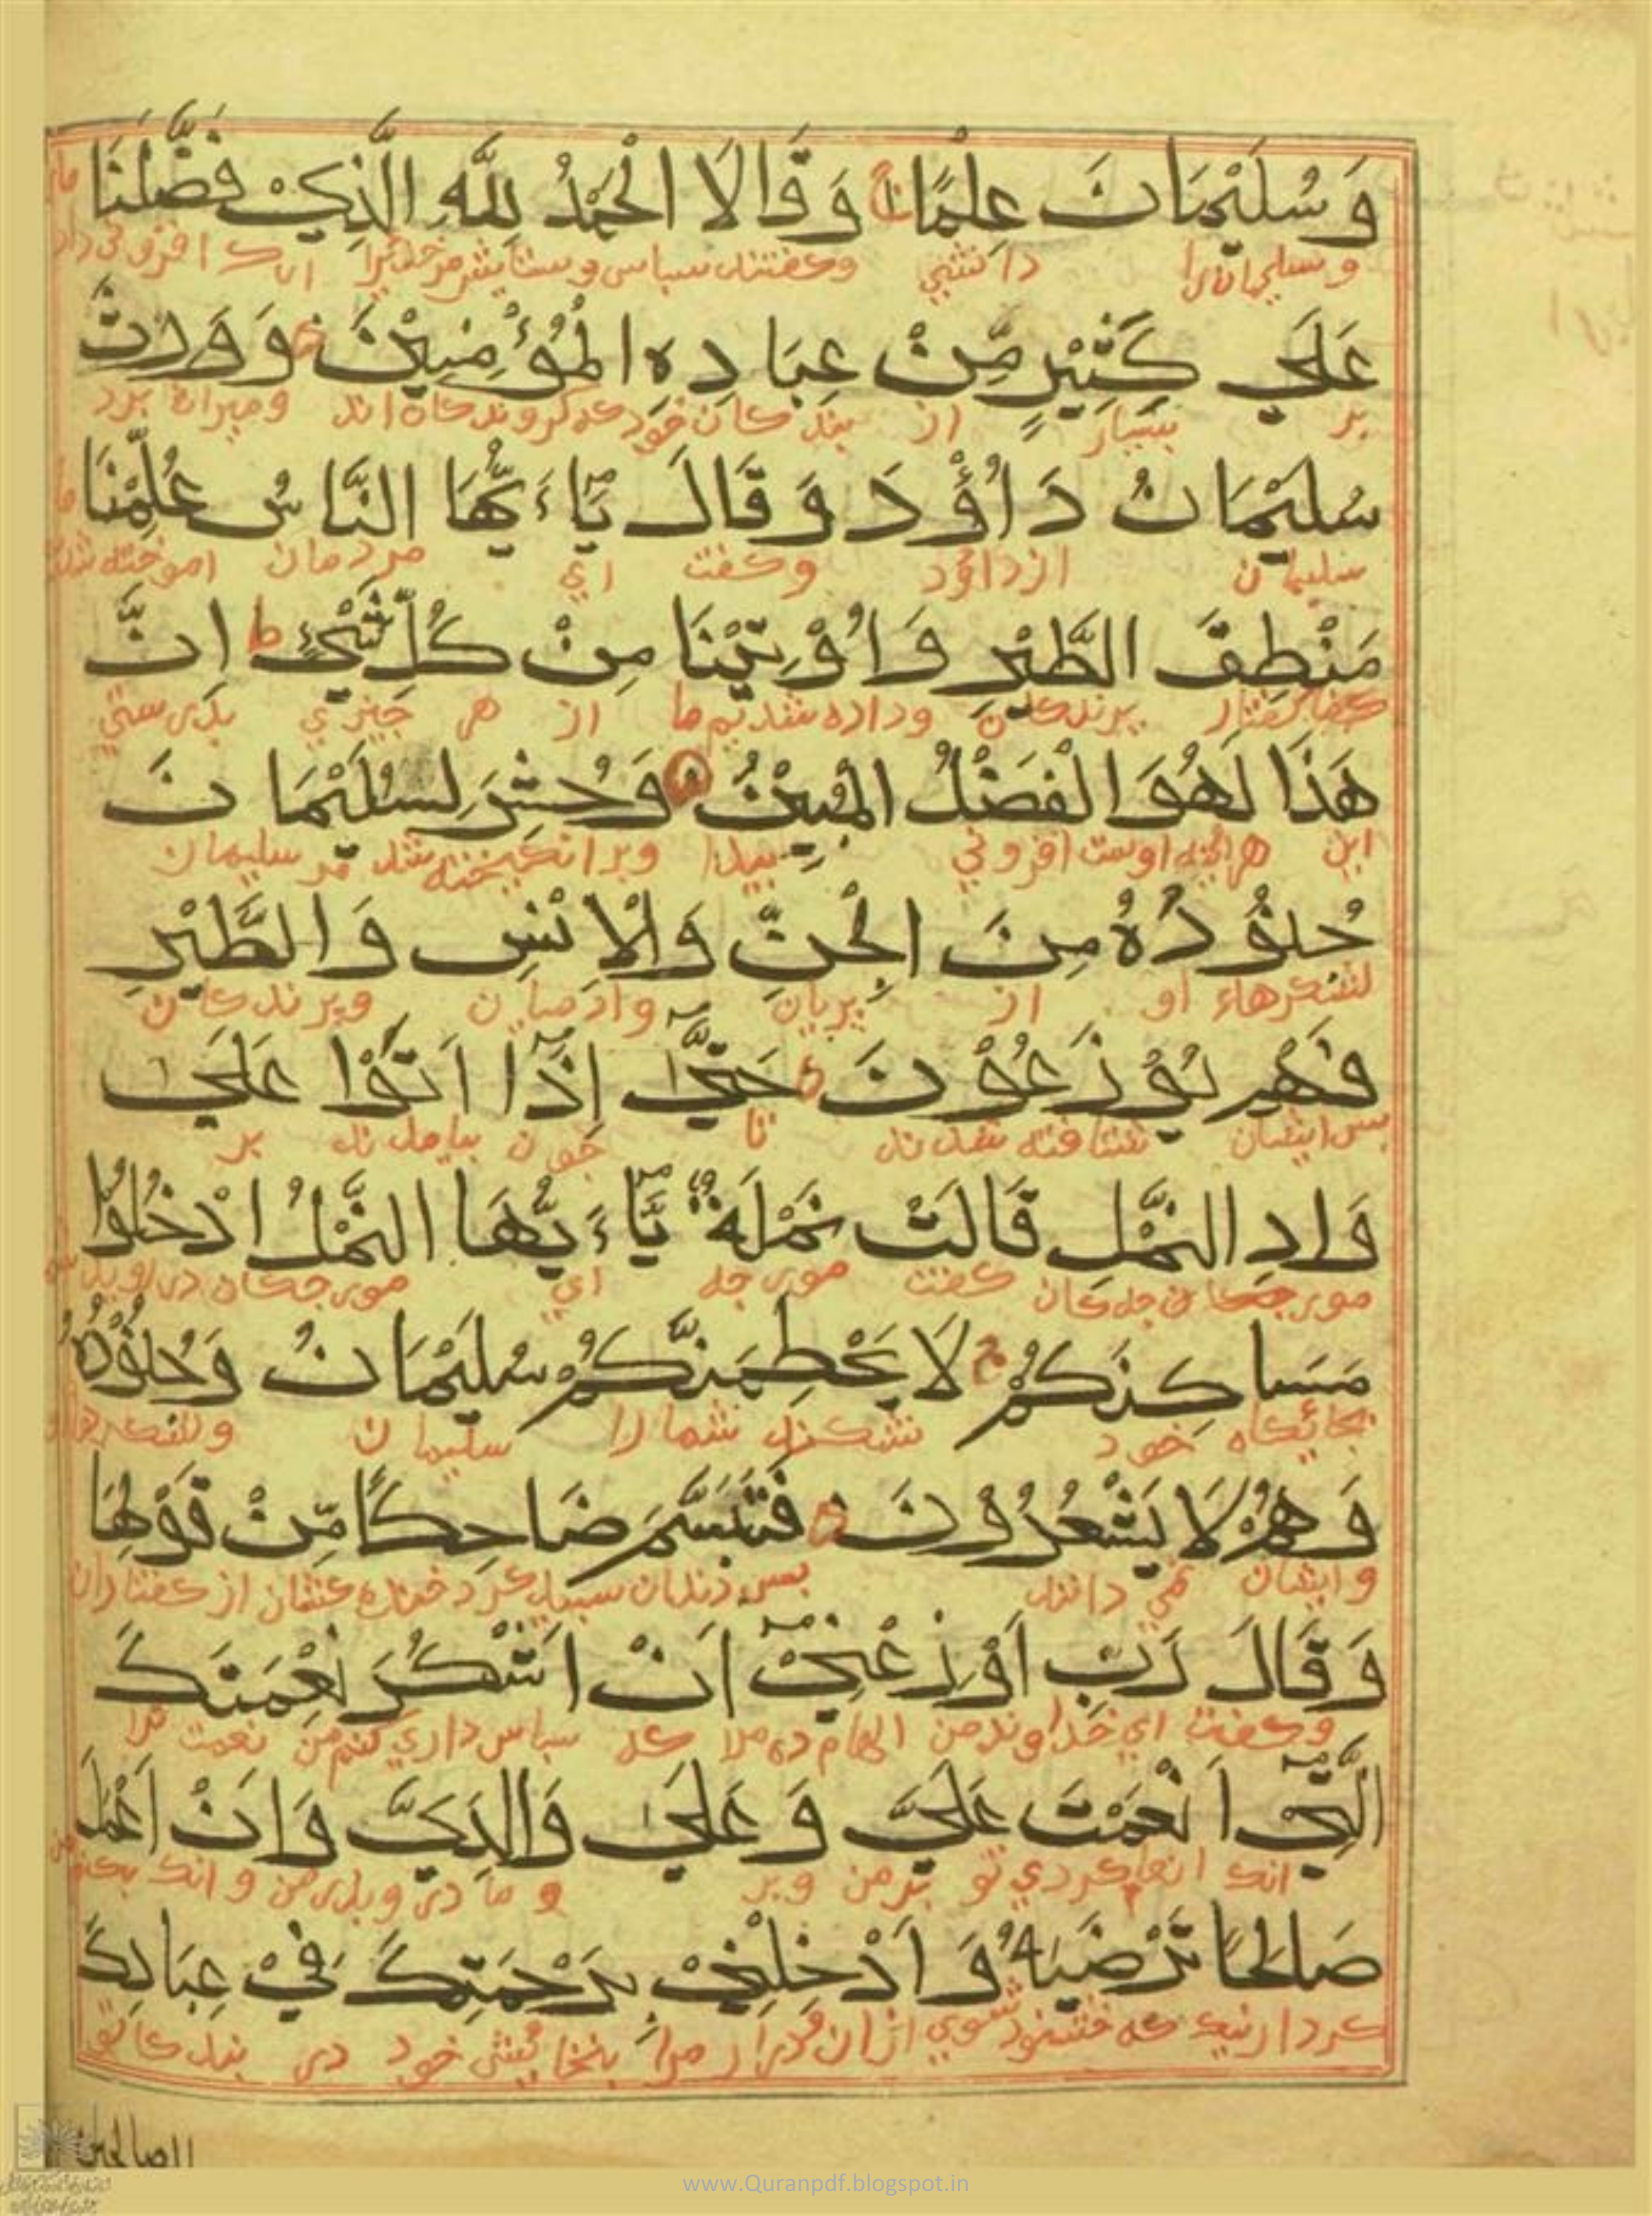 وَسُلَيْمَانَ عِلْمًا وَقَالَا الْحَمْدُ لِلَّهِ الَّذِيْ فَضَّلَنَا
وسليمانرا دانشي وكفتند سباس وستايش مر خدايرا انك افزوني داد ما
عَلَى كَثِيْرٍ مِّنْ عِبَادِهِ الْمُؤْمِنِيْنَ وَوَرِثَ
بر بسيار از بندكان خود كه كروندكان اند وميراث برد
سُلَيْمَانُ دَاوُٗدَ وَقَالَ يَٓاءَيُّهَا النَّاسُ عُلِّمْنَا
سليمان از داود وكفت اي مردمان اموخته شد ما
مَنْطِقَ الطَّيْرِ وَاُوْتِيْنَا مِنْ كُلِّ شَيْءٍ ط اِنَّ
كفتار برندكان وداده شديم ما از هر جيزي بدرستي
هَذَا لَهُوَ الْفَضْلُ الْمُبِيْنُ وَحُشِرَ لِسُلَيْمَانَ
اين هراينه اوست افزوني بيدا وبرانكيخته شد مر سليمان
جُنُوْدُهُ مِنَ الْجِنِّ وَالْاِنْسِ وَالطَّيْرِ
لشكرهاء او از بريان وادميان وبرندكان
فَهُمْ يُوْزَعُوْنَ حَتَّى اِذَٓا اَتَوْا عَلَى
بس ايشان شتافته شدند تا جون بيامدند بر
وَادِ النَّمْلِ قَالَتْ نَمْلَةٌ يَٓاءَيُّهَا النَّمْلُ ادْخُلُوْا
مورجكان كفت مورجه اي مورجكان در رويد
مَسَاكِنَكُمْ ج لَا يَحْطِمَنَّكُمْ سُلَيْمَانُ وَجُنُوْدُهُ
بجائكاه خود نشكند شما را سليمان ولشكرهاء
وَهُمْ لَا يَشْعُرُوْنَ فَتَبَسَّمَ ضَاحِكًا مِّنْ قَوْلِهَا
وايشان نمي دانند بس دندان سبيد كرد خنده كنان از كفتار ان
وَقَالَ رَبِّ اَوْزِعْنِيْٓ اَنْ اَشْكُرَ نِعْمَتَكَ
وكفت اي خداوند من الهام ده مرا كه سباس داري كنم من نعمت ترا
الَّتِيْٓ اَنْعَمْتَ عَلَيَّ وَعَلَى وَالِدَيَّ وَاَنْ اَعْمَلَ
انك انعام كردي تو بر من وبر ومادر وبدر من وانك بكنم
صَالِحًا تَرْضَيهُ وَاَدْخِلْنِيْ بِرَحْمَتِكَ فِيْ عِبَادِكَ
كردار نيك كه خشنود شوي از ان ودرار مرا بخشايش خود در بندكان تو
الصالحين
www.Quranpdf.blogspot.in